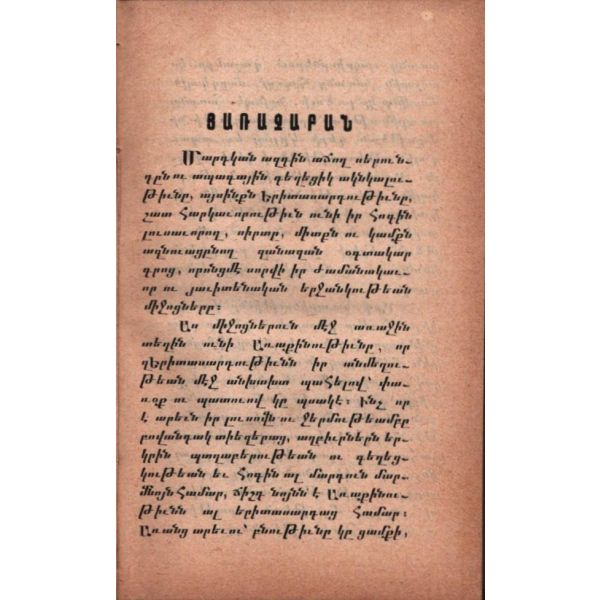 ՅԱՌԱՋԱԲԱՆ
Մարդկան ազգին աճող սերուն-
դըն ու ապագային գեղեցիկ ակնկալու-
թիւնը, այսինքն Երիտասարդութիւնը,
շատ հարկաւորութիւն ունի իր հոգին
լուսաւորող, սիրտը, միտքն ու կամքն
ազնուացընող զանազան օգտակար
գրոց, որոնցմէ սորվի իր ժամանակաւ-
որ ու յաւիտենական երջանկութեան
միջոցները:
Աս միջոցներուն մէջ առաջին
տեղին ունի Առաքինութիւնը, որ
զԵրիտասարդութիւնն իր անմեղու-
թեան մէջ անխախտ պահելով՝ փա-
ռօք ու պատուով կը պսակէ: Ինչ որ
է արեւն իր լուսովն ու ջերմութեամբը
բովանդակ տիեզերաց, աղբիւրներն եր-
կրին պտղաբերութեան ու գեղեց-
կութեան եւ հոգին ալ մարդուն մար-
մնոյն համար, ճիշդ նոյնն է Առաքինու-
թիւնն ալ երիտասարդաց համար:
Առանց արեւու՝ բնութիւնը կը ցամքի,